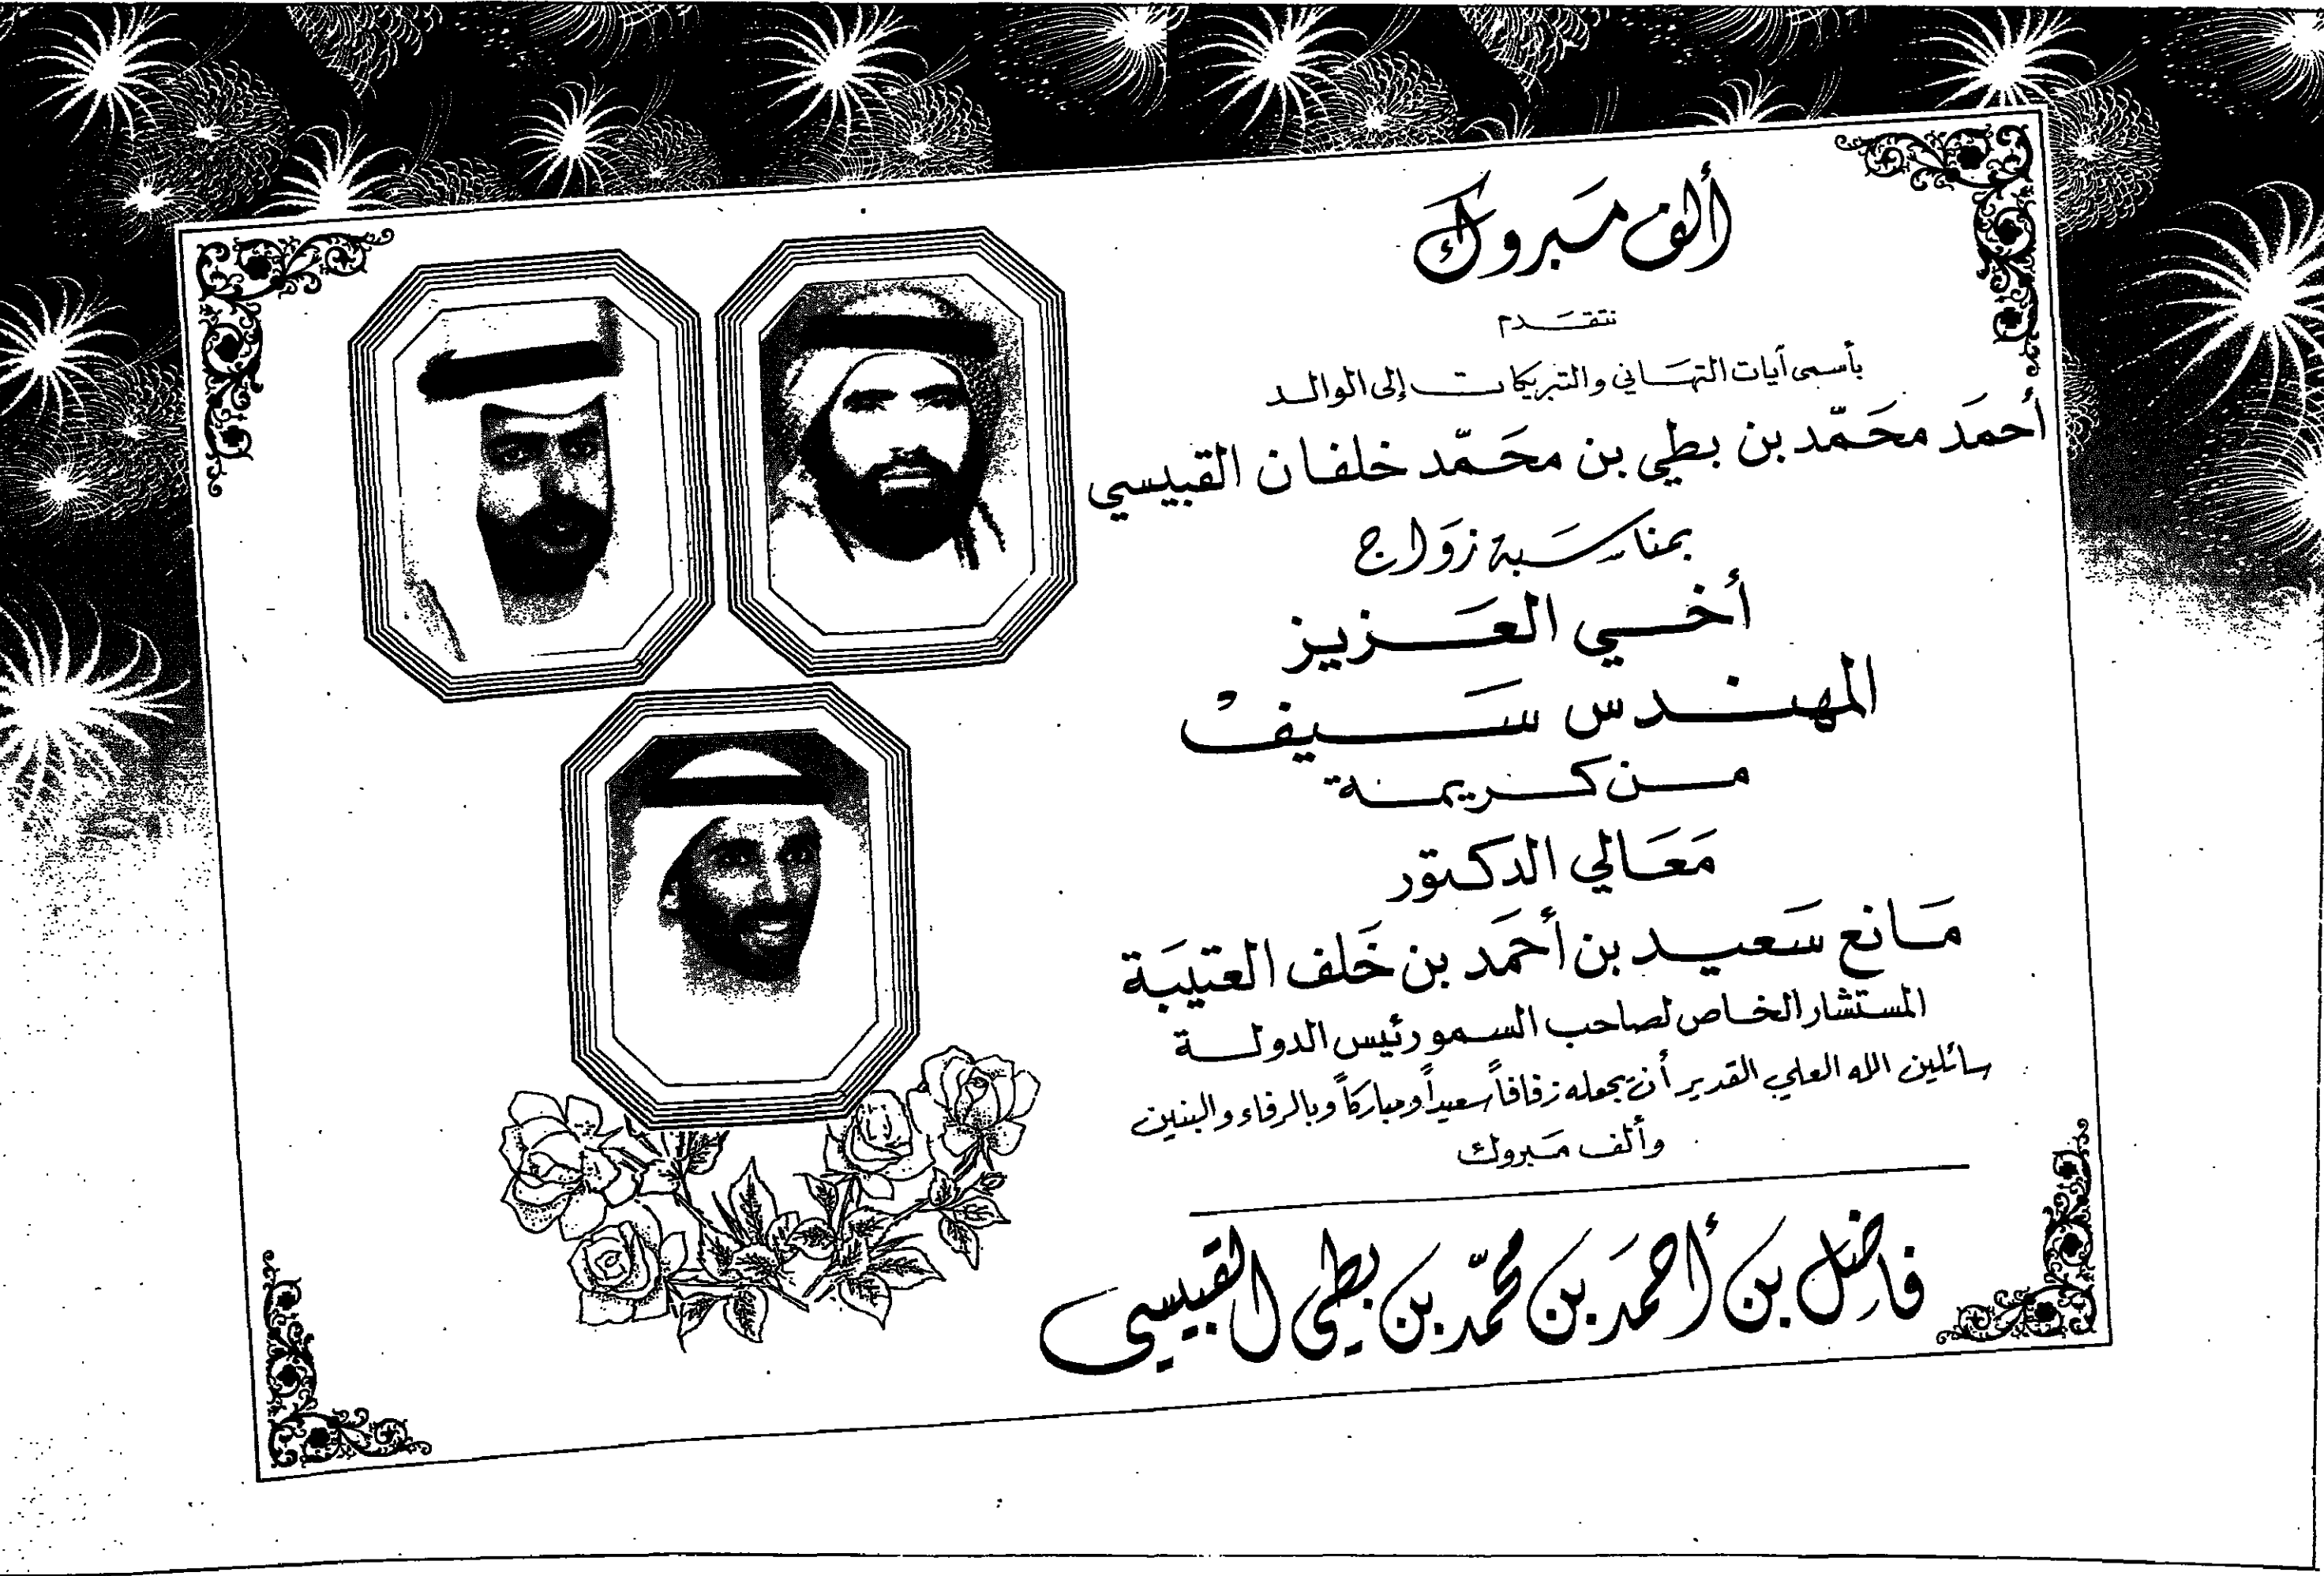 ألف مبروك
نتقدم
بأسمى آيات التهاني والتبريكات إلى الوالد
أحمد محمّد بن بطي بن محمّد خلفان القبيسي
بمناسبة زواج
أخي العزيز
المهندس سيف
من كريمة
معالي الدكتور
مانع سعيد بن أحمد بن خلف العتيبة
المستشار الخاص لصاحب السمو رئيس الدولة
سائلين الله العلي القدير أن يجعله زفافاً سعيداً ومباركاً وبالرفاء والبنين
وألف مبروك
فاضل بن أحمد بن محمّد بن بطي القبيسي